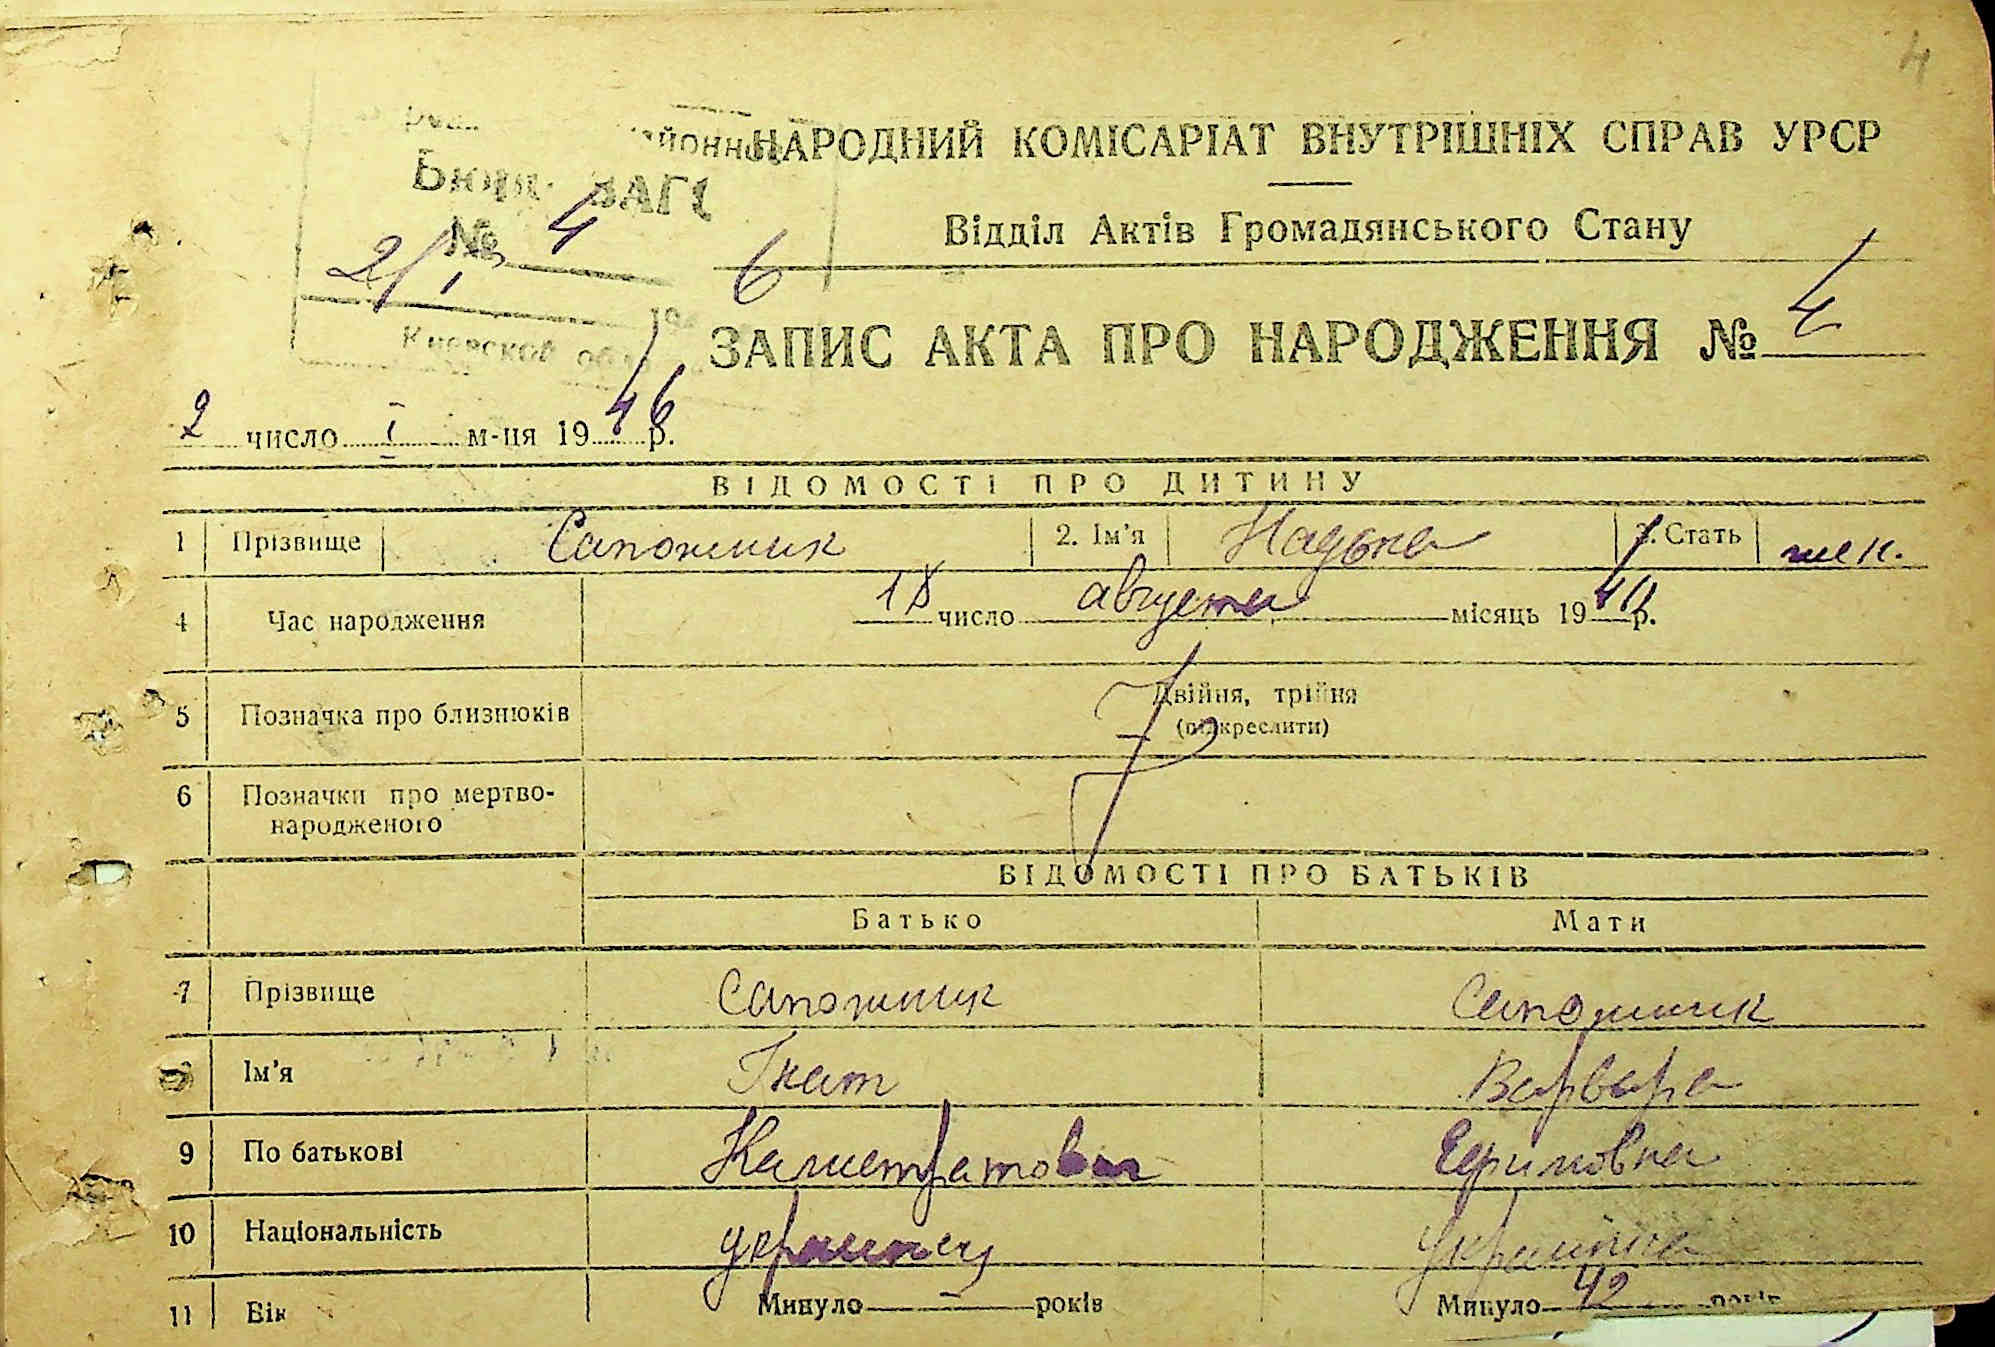 4
НАРОДНИЙ КОМІСАРІАТ ВНУТРІШНІХ СПРАВ УРСР
Бюро ЗАГС
Відділ Актів Громадянського Стану
№ 4
2/I 6
Киевской
ЗАПИС АКТА ПРО НАРОДЖЕННЯ № 4
2 число I м-ця 1946 р.
ВІДОМОСТІ ПРО ДИТИНУ
1 Прізвище Сапожник 2. Ім'я Надька 3. Стать жен.
4 Час народження 18 число августа місяць 1940 р.
5 Позначка про близнюків Двійня, трійня
(підкреслити)
6 Позначки про мертво-
народженого
ВІДОМОСТІ ПРО БАТЬКІВ
Батько Мати
7 Прізвище Сапожник Сапожник
8 Ім'я Гнат Варвара
9 По батькові Калистратович Ефимовна
10 Національність украинец украинка
11 Вік Минуло — років Минуло 42 років